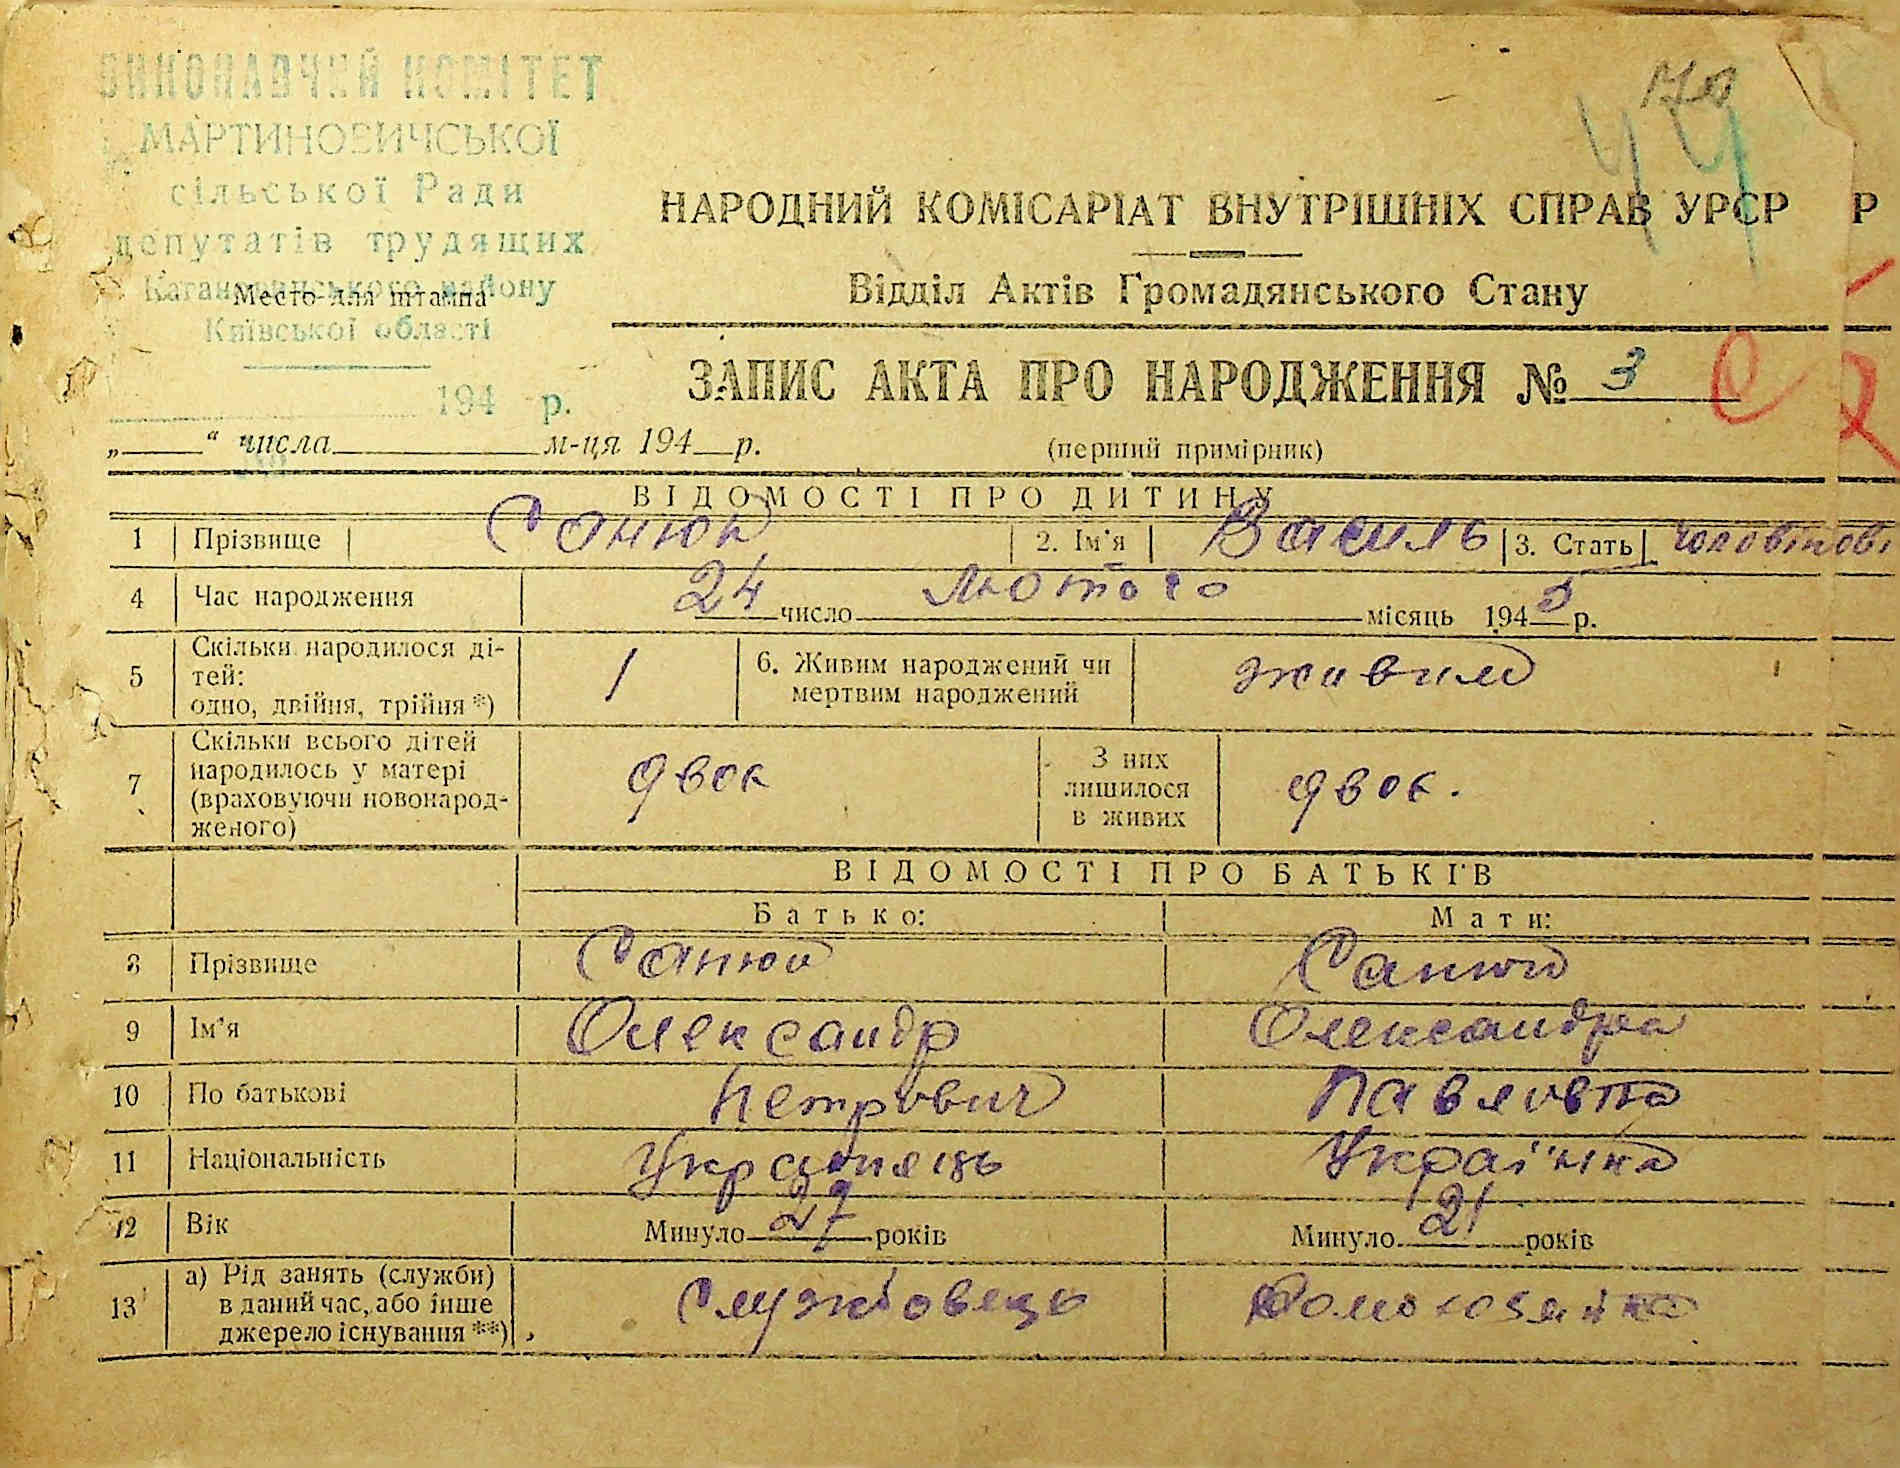 ВИКОНАВЧИЙ КОМІТЕТ
МАРТИНОВИЧСЬКОЇ
сільської Ради
депутатів трудящих
Кагановичського району
Место для штампа
Київської області
194 р.
„ “ числа м-ця 194 р.
44
НАРОДНИЙ КОМІСАРІАТ ВНУТРІШНІХ СПРАВ УРСР Р
Відділ Актів Громадянського Стану
ЗАПИС АКТА ПРО НАРОДЖЕННЯ № 3
(перший примірник)
ВІДОМОСТІ ПРО ДИТИНУ
1 Прізвище Санюк 2. Ім'я Василь 3. Стать
4 Час народження 24 число лютого місяць 1945 р.
5 Скільки народилося ді-
тей:
одно, двійня, трійня *) 1 6. Живим народжений чи
мертвим народжений живим
7 Скільки всього дітей
народилось у матері
(враховуючи новонарод-
женого) двок З них
лишилося
в живих двок.
ВІДОМОСТІ ПРО БАТЬКІВ
Батько: Мати:
8 Прізвище Санюк Санюк
9 Ім'я Олександр Олександра
10 По батькові Петрович Павловна
11 Національність Українець Українка
12 Вік Минуло 27 років Минуло 21 років
13 а) Рід занять (служби)
в даний час, або інше
джерело існування **) Службовець Домохазяйка